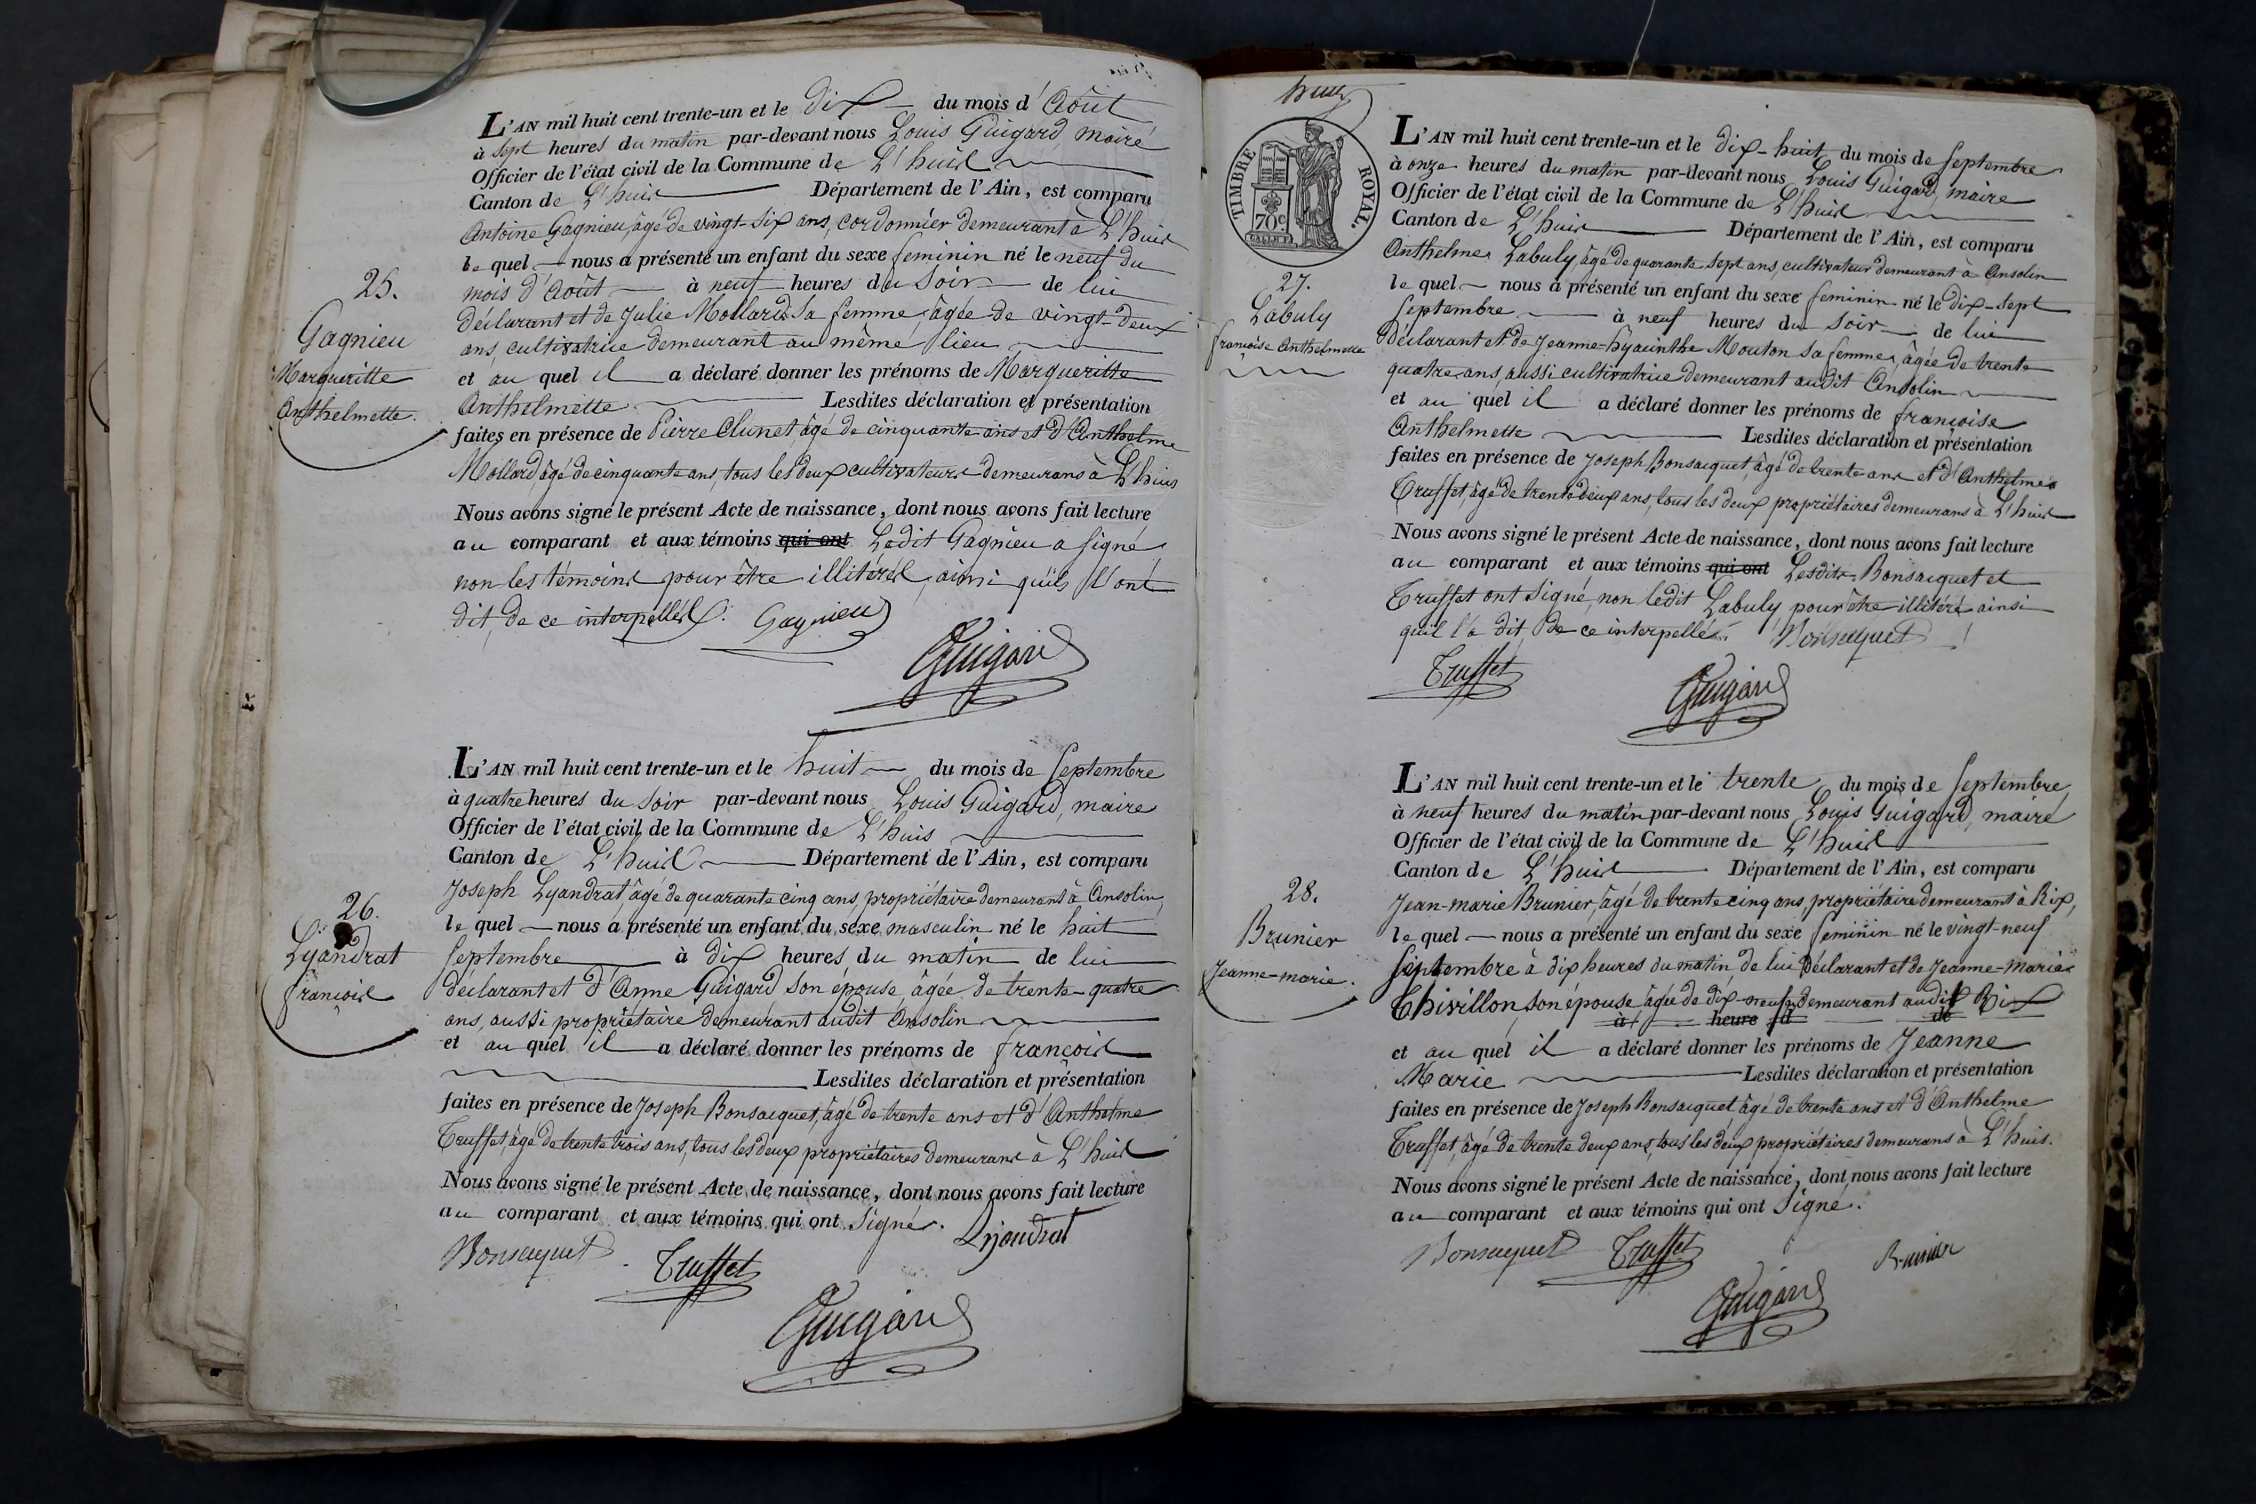 L'AN mil huit cent trente-un et le dix du mois d'Août
à sept heures du matin par-devant nous Louis Guigard, maire
Officier de l'état civil de la Commune de L'huis
Canton de L'huis Département de l'Ain, est comparu
Antoine Gagnieu, âgé de vingt-six ans, cordonnier demeurant à L'huis
le quel nous a présenté un enfant du sexe feminin né le neuf du
mois d'Août à neuf heures du soir de lui
déclarant et de Julie Mollard sa femme, âgée de vingt-deux
ans, cultivatrice demeurant au même lieu
et au quel il a déclaré donner les prénoms de Margueritte
Anthelmette Lesdites déclaration et présentation
faites en présence de Pierre Clunet, âgé de cinquante ans et d'Anthelme
Mollard, âgé de cinquante ans, tous les deux cultivateurs demeurans à L'huis
Nous avons signé le présent Acte de naissance, dont nous avons fait lecture
au comparant et aux témoins qui ont Ledit Gagnieu a signé
non les témoins pour être illitérés, ainsi qu'ils l'ont
dit, de ce interpellés. Gagnieu
Guigard
25.
Gagnieu
Margueritte
Anthelmette.
L'AN mil huit cent trente-un et le huit du mois de Septembre
à quatre heures du soir par-devant nous Louis Guigard, maire
Officier de l'état civil de la Commune de L'huis
Canton de L'huis Département de l'Ain, est comparu
Joseph Lyandrat, âgé de quarante cinq ans, propriétaire demeurant à Ansolin,
le quel nous a présenté un enfant du sexe masculin né le huit
Septembre à dix heures du matin de lui
déclarant et d'Anne Guigard son épouse, âgée de trente-quatre
ans, aussi propriétaire demeurant audit Ansolin
et au quel il a déclaré donner les prénoms de françois
Lesdites déclaration et présentation
faites en présence de Joseph Bonsacquet, âgé de trente ans et d'Anthelme
Truffet, âgé de trente trois ans, tous les deux propriétaires demeurans à L'huis
Nous avons signé le présent Acte de naissance, dont nous avons fait lecture
au comparant et aux témoins qui ont signé. Lyandrat
Bonsacquet Truffet
Guigard
26.
Lyandrat
françois
TIMBRE ROYAL.
70c
27.
Labuly
françoise Anthelmette
L'AN mil huit cent trente-un et le dix-huit du mois de Septembre
à onze heures du matin par-devant nous Louis Guigard, maire
Officier de l'état civil de la Commune de L'huis
Canton de L'huis Département de l'Ain, est comparu
Anthelme Labuly, âgé de quarante sept ans, cultivateur demeurant à Ansolin
le quel nous a présenté un enfant du sexe feminin né le dix-sept
Septembre à neuf heures du soir de lui
déclarant et de Jeanne-hyacinthe Mouton sa femme, âgée de trente
quatre ans, aussi cultivatrice demeurant audit Ansolin
et au quel il a déclaré donner les prénoms de françoise
Anthelmette Lesdites déclaration et présentation
faites en présence de Joseph Bonsacquet, âgé de trente ans et d'Anthelme
Truffet, âgé de trente deux ans, tous les deux propriétaires demeurans à L'huis
Nous avons signé le présent Acte de naissance, dont nous avons fait lecture
au comparant et aux témoins qui ont Lesdits Bonsacquet et
Truffet ont signé, non ledit Labuly pour être illitéré ainsi
qu'il l'a dit, de ce interpellé. Bonsacquet
Truffet
Guigard
28.
Brunier
Jeanne-marie.
L'AN mil huit cent trente-un et le trente du mois de Septembre
à neuf heures du matin par-devant nous Louis Guigard, maire
Officier de l'état civil de la Commune de L'huis
Canton de L'huis Département de l'Ain, est comparu
Jean-marie Brunier, âgé de trente cinq ans, propriétaire demeurant à Rix,
le quel nous a présenté un enfant du sexe feminin né le vingt-neuf
Septembre à dix heures du matin, de lui déclarant et de Jeanne-Marie
Thivillon, son épouse, âgée de dix-neuf, demeurant audit Rix
à heure d de
et au quel il a déclaré donner les prénoms de Jeanne
Marie Lesdites déclaration et présentation
faites en présence de Joseph Bonsacquet, âgé de trente ans et d'Anthelme
Truffet, âgé de trente deux ans, tous les deux propriétaires demeurans à L'huis.
Nous avons signé le présent Acte de naissance, dont nous avons fait lecture
au comparant et aux témoins qui ont signé.
Bonsacquet Truffet Brunier
Guigard